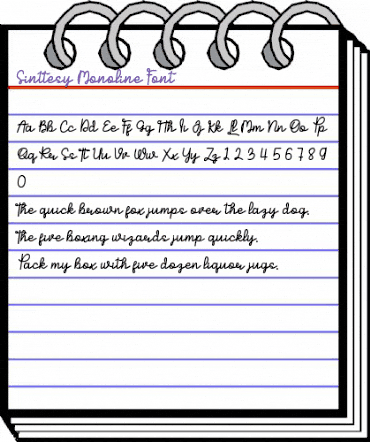 Sinttesy Monoline Font
Aa Bb Cc Dd Ee Ff Gg Hh Ii Jj Kk Ll Mm Nn Oo Pp
Qq Rr Ss Tt Uu Vv Ww Xx Yy Zz 1 2 3 4 5 6 7 8 9
0
The quick brown fox jumps over the lazy dog.
The five boxing wizards jump quickly.
Pack my box with five dozen liquor jugs.